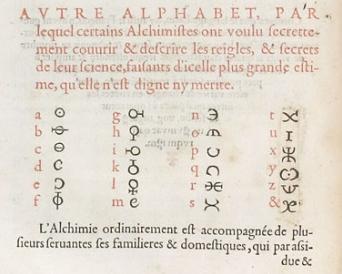 AVTRE ALPHABET, PAR
lequel certains Alchimistes ont voulu secrette-
ment couurir & descrire les reigles, & secrets
de leur science, faisants d'icelle plus grande esti-
me, qu'elle n'est digne ny merite.
a g n t
b h o u
c i p x
d k q y
e l r z
f m s &
L'Alchimie ordinairement est accompagnée de plu-
sieurs seruantes ses familieres & domestiques, qui par assi-
due &